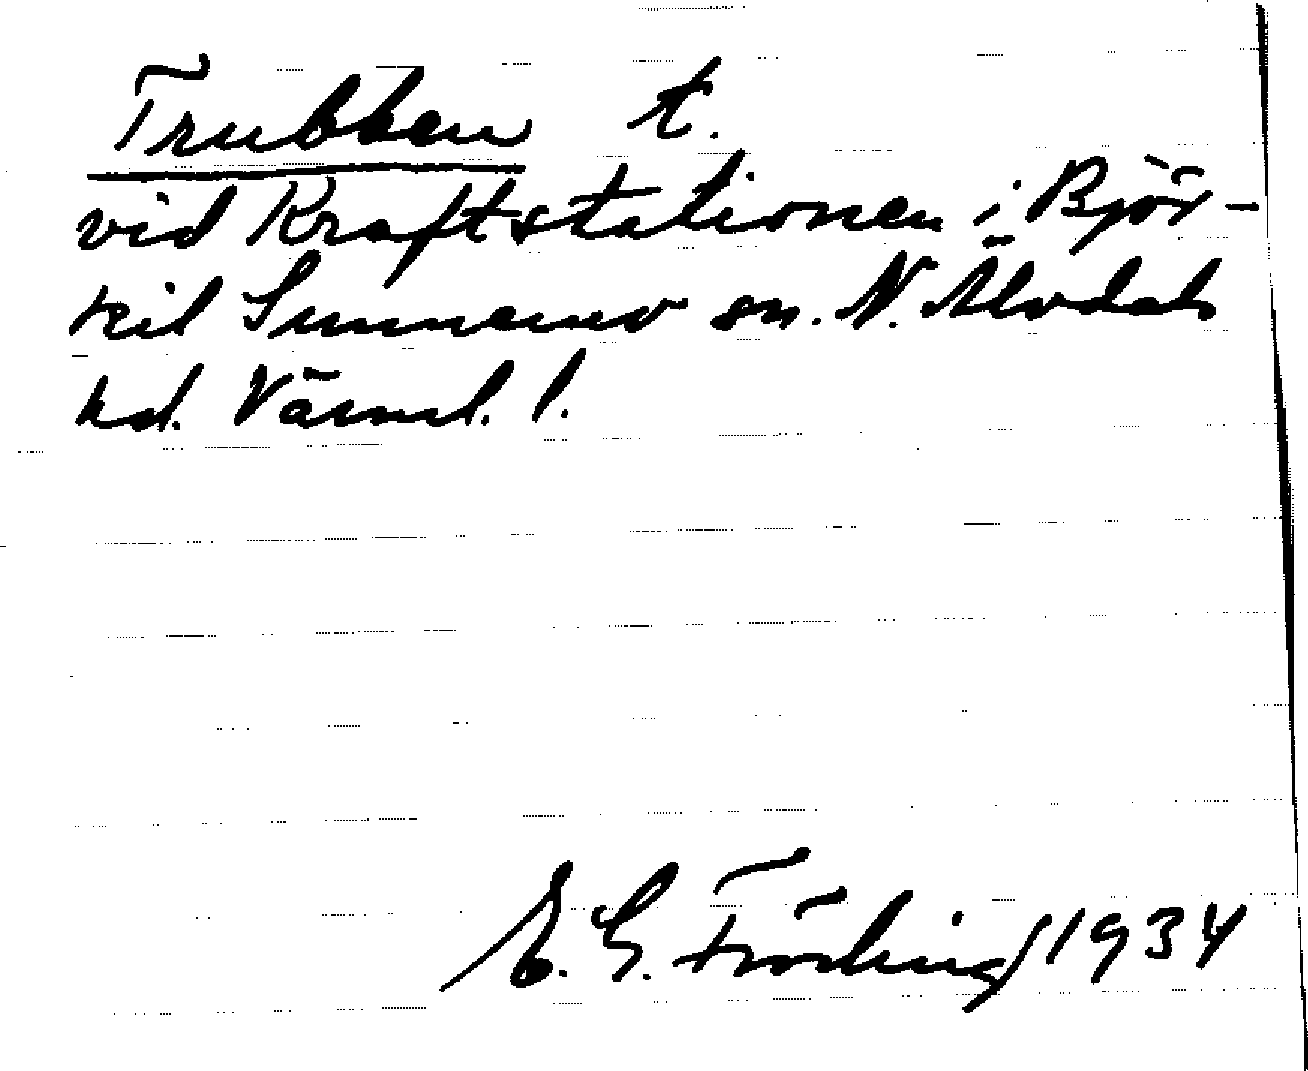 Trubben t.
vid Kraftstationen i Björ-
kil Sunnemo sn. N. Älvdals
hd. Värml. l.
E. G. Fröding 1934